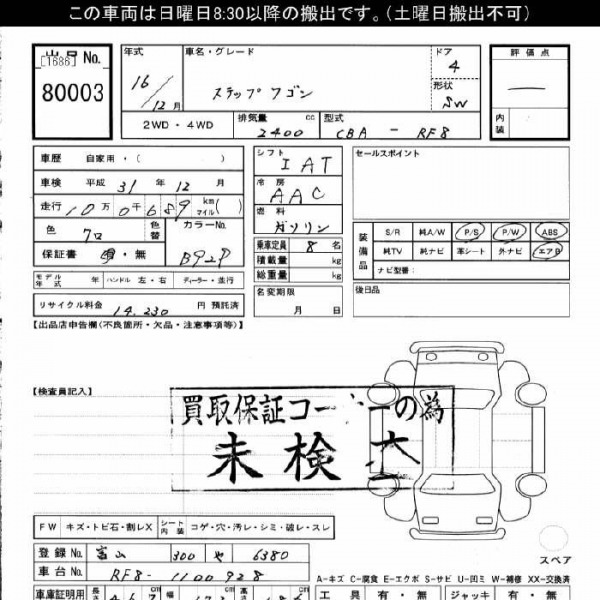 この車両は日曜日8:30以降の搬出です。(土曜日搬出不可)
出品No.
[1686]
80003
年式
16/12月
車名・グレード
ステップワゴン
ドア
4
形状
SW
評価点
内装
2WD・4WD
排気量
2400 cc
型式
CBA - RF8
車歴 自家用・( )
車検 平成 31年 12月
走行 10万0千689 km マイル( )
色 クロ
色替
カラーNo.
B92P
保証書 有・無
シフト
IAT
冷房
AAC
燃料
ガソリン
乗車定員 8名
積載量 kg
総重量 kg
セールスポイント
装備品
S/R 純A/W P/S P/W ABS
純TV 純ナビ 革シート 外ナビ エアB
ナビ型番:
モデル年式 年 ハンドル 左・右 ディーラー・並行
リサイクル料金 14,230 円 預託済
名変期限
月 日
後日品
【出品店申告欄(不良箇所・欠品・注意事項等)】
【検査員記入】
買取保証コーナーの為
未検査
FW キズ・トビ石・割レX シート内装 コゲ・穴・汚レ・シミ・破レ・スレ
スペア
登録No. 富山 300 や 6380
車台No. RF8-1100928
A-キズ C-腐食 E-エクボ S-サビ U-凹ミ W-補修 XX-交換済
車庫証明用
長さ
幅
高さ
工具 有・無 ジャッキ 有・無